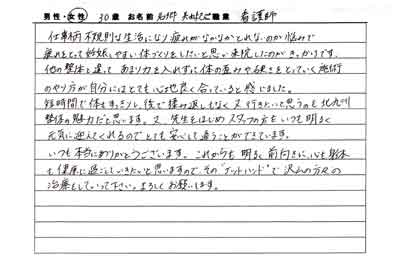 男性・女性 30歳 お名前 職業 看護師
仕事柄 不規則な生活になり 疲れがなかなかとれないのが悩みで
疲れをとって妊娠しやすい体づくりをしたいと思い来院したのがきっかけです。
他の整体と違って あまり力を入れずに体の歪みや硬さをとっていく施術
のやり方が自分にはとても心地良く合っていると感じました。
短時間で体もすっきりし、後で揉み返しもなく 又行きたいと思うのも北九州
整体の魅力だと思います。又、先生をはじめ スタッフの方もいつも明るく
元気に迎えてくれるのでとても安心して通うことができています。
いつも本当にありがとうございます。これからも 明るく前向きに、心も身体
も健康に過ごしていきたいと思いますので、その"ゴッドハンド"で沢山の方々の
治療をしていって下さい。よろしくお願いします。